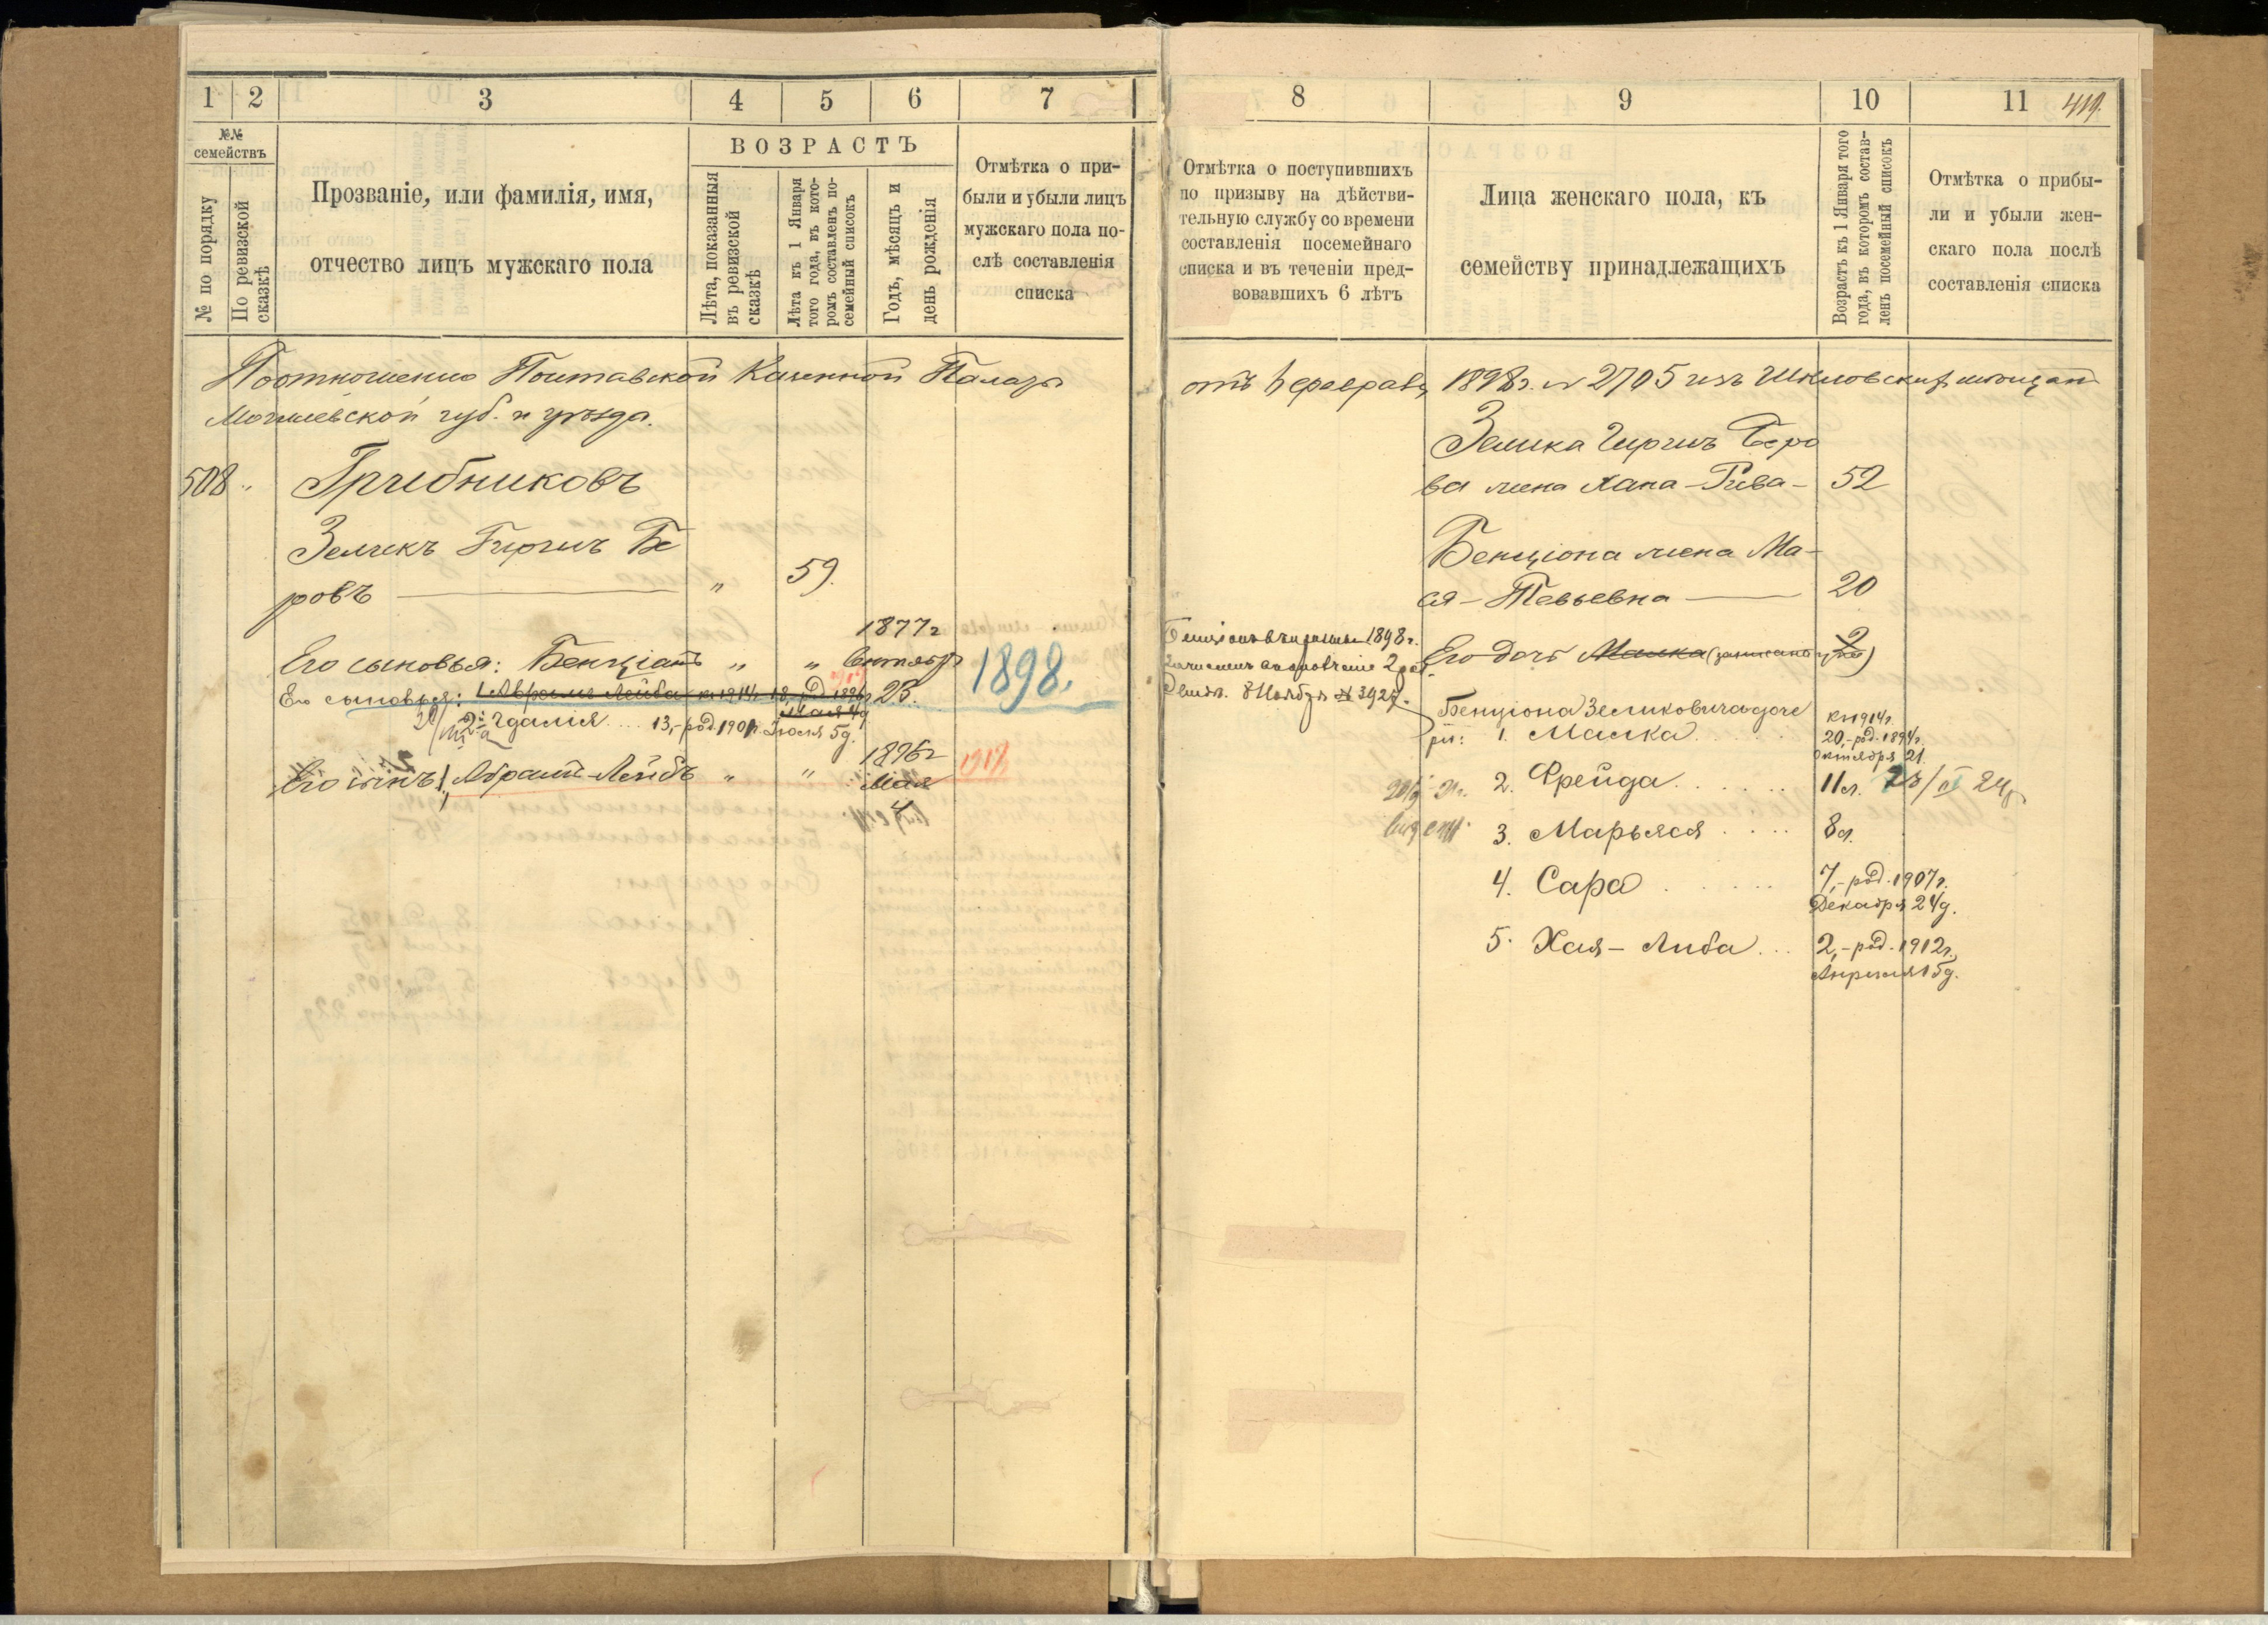 1
2
3
4
5
6
7
№№
семействъ
№ по порядку
По ревизской
сказкѣ
Прозваніе, или фамилія, имя,
отчество лицъ мужскаго пола
ВОЗРАСТЪ
Лѣта, показанныя
въ ревизской
сказкѣ
Лѣта къ 1 Января
того года, въ кото-
ромъ составленъ по-
семейный списокъ
Годъ, мѣсяцъ и
день рожденія
Отмѣтка о при-
были и убыли лицъ
мужскаго пола по-
слѣ составленія
списка
Поотношенію Полтавской Казенной Палаты
Могилевской губ. и уѣзда.
508 "
Грибниковъ
Зеликъ Гиршъ Бе
ровъ " 59.
1877 г
Его сыновья: Бенціанъ " " Октябр
23.
1898.
Его сыновья: 1. Абрамъ Лейба къ 1914 г. 18, род. 1896 г
Мая 4 д
2. Гдалія .... 13, - род. 1901 г. Іюля 5 д.
1896 г
Его сынъ: Абрамъ-Лейбъ " " Мая
4
1917
8
9
10
11
419.
Отмѣтка о поступившихъ
по призыву на дѣйстви-
тельную службу со времени
составленія посемейнаго
списка и въ теченіи пред-
вовавшихъ 6 лѣтъ
Лица женскаго пола, къ
семейству принадлежащихъ
Возрастъ къ 1 Января того
года, въ которомъ состав-
ленъ посемейный списокъ
Отмѣтка о прибы-
ли и убыли жен-
скаго пола послѣ
составленія списка
отъ февраля 1898 г. № 2705 изъ Шкловскихъ мѣщанъ
Зелика Гирша Беро
ва жена Хана-Рива- 52
Бенціона жена Ма-
ся-Тевьевна 20
1898 г.
2 раз.
8 Ноября № 3927.
Его дочь Малка (записана ) 2
Бенціона Зеликовича доче
ри: 1. Малка
къ 1914 г.
20, - род. 1894 г.
Октября 21.
2. Фрейда 11 л.
3. Марьяся 8 л.
4. Сара 7, - род. 1907 г.
Декабря 24 д.
5. Хая-Либа 2, - род. 1912 г.
Апрѣля 15 д.